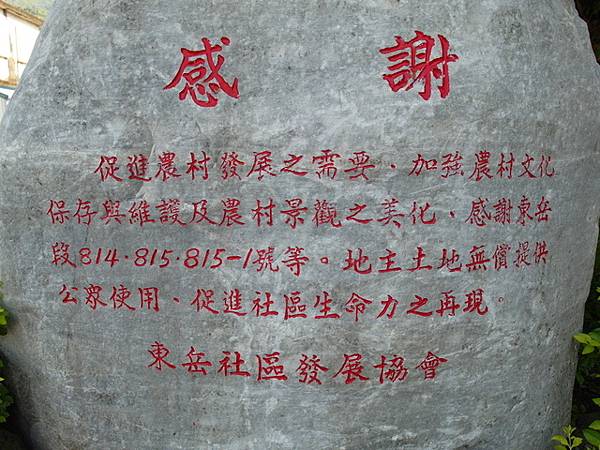 感謝
促進農村發展之需要、加強農村文化
保存與維護及農村景觀之美化、感謝東岳
段814·815·815-1號等。地主土地無償提供
公眾使用、促進社區生命力之再現。
東岳社區發展協會